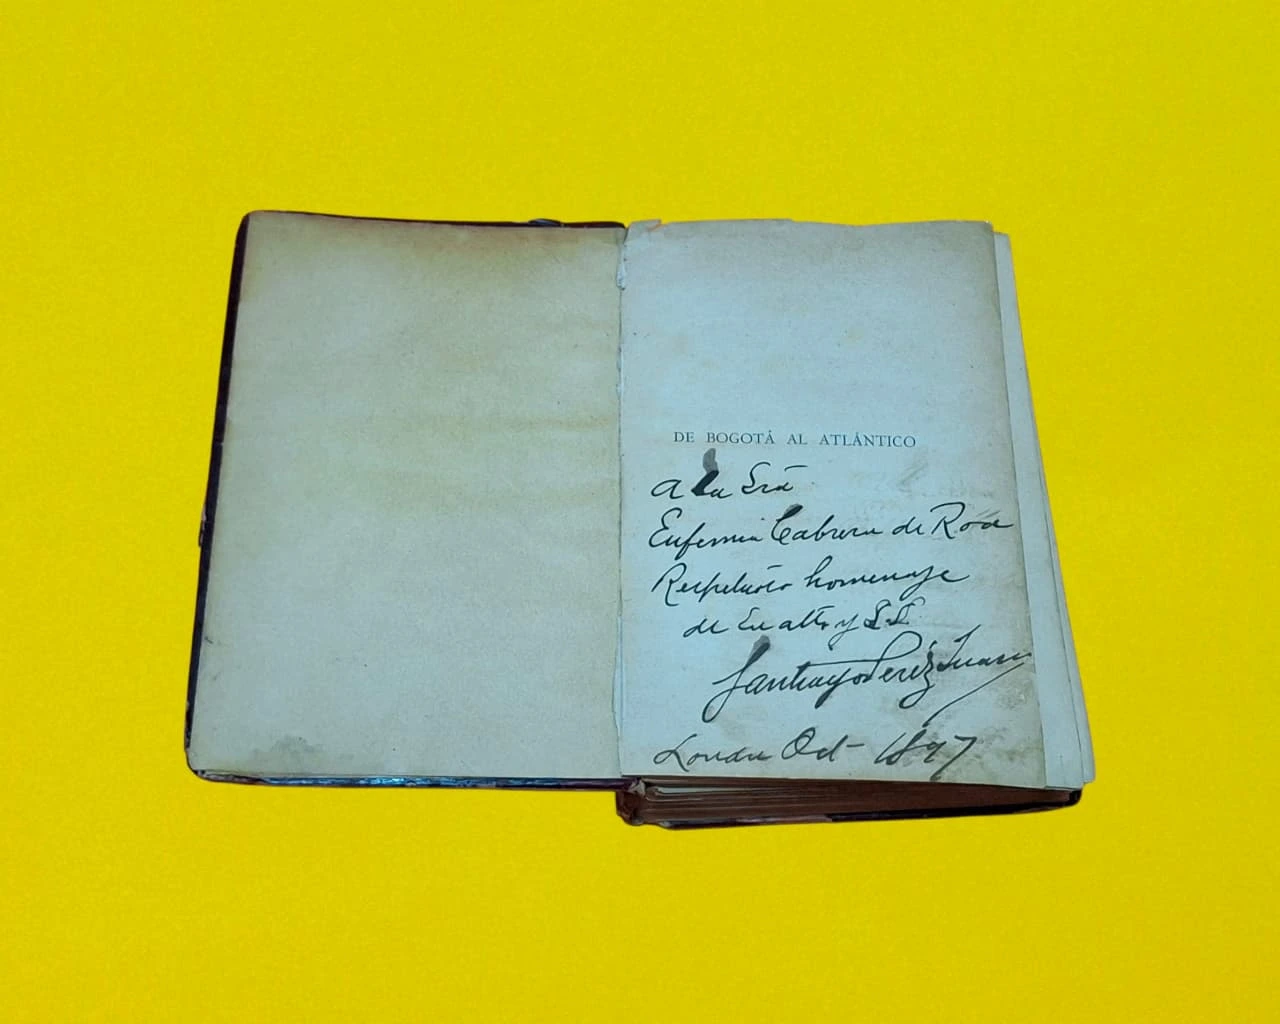 DE BOGOTÁ AL ATLÁNTICO
A la Srā
Eufemia Cabrera de Roa
Respetuoso homenaje
de Su atto y S.S.
Santiago Pérez Triana
Londres Oct 1897